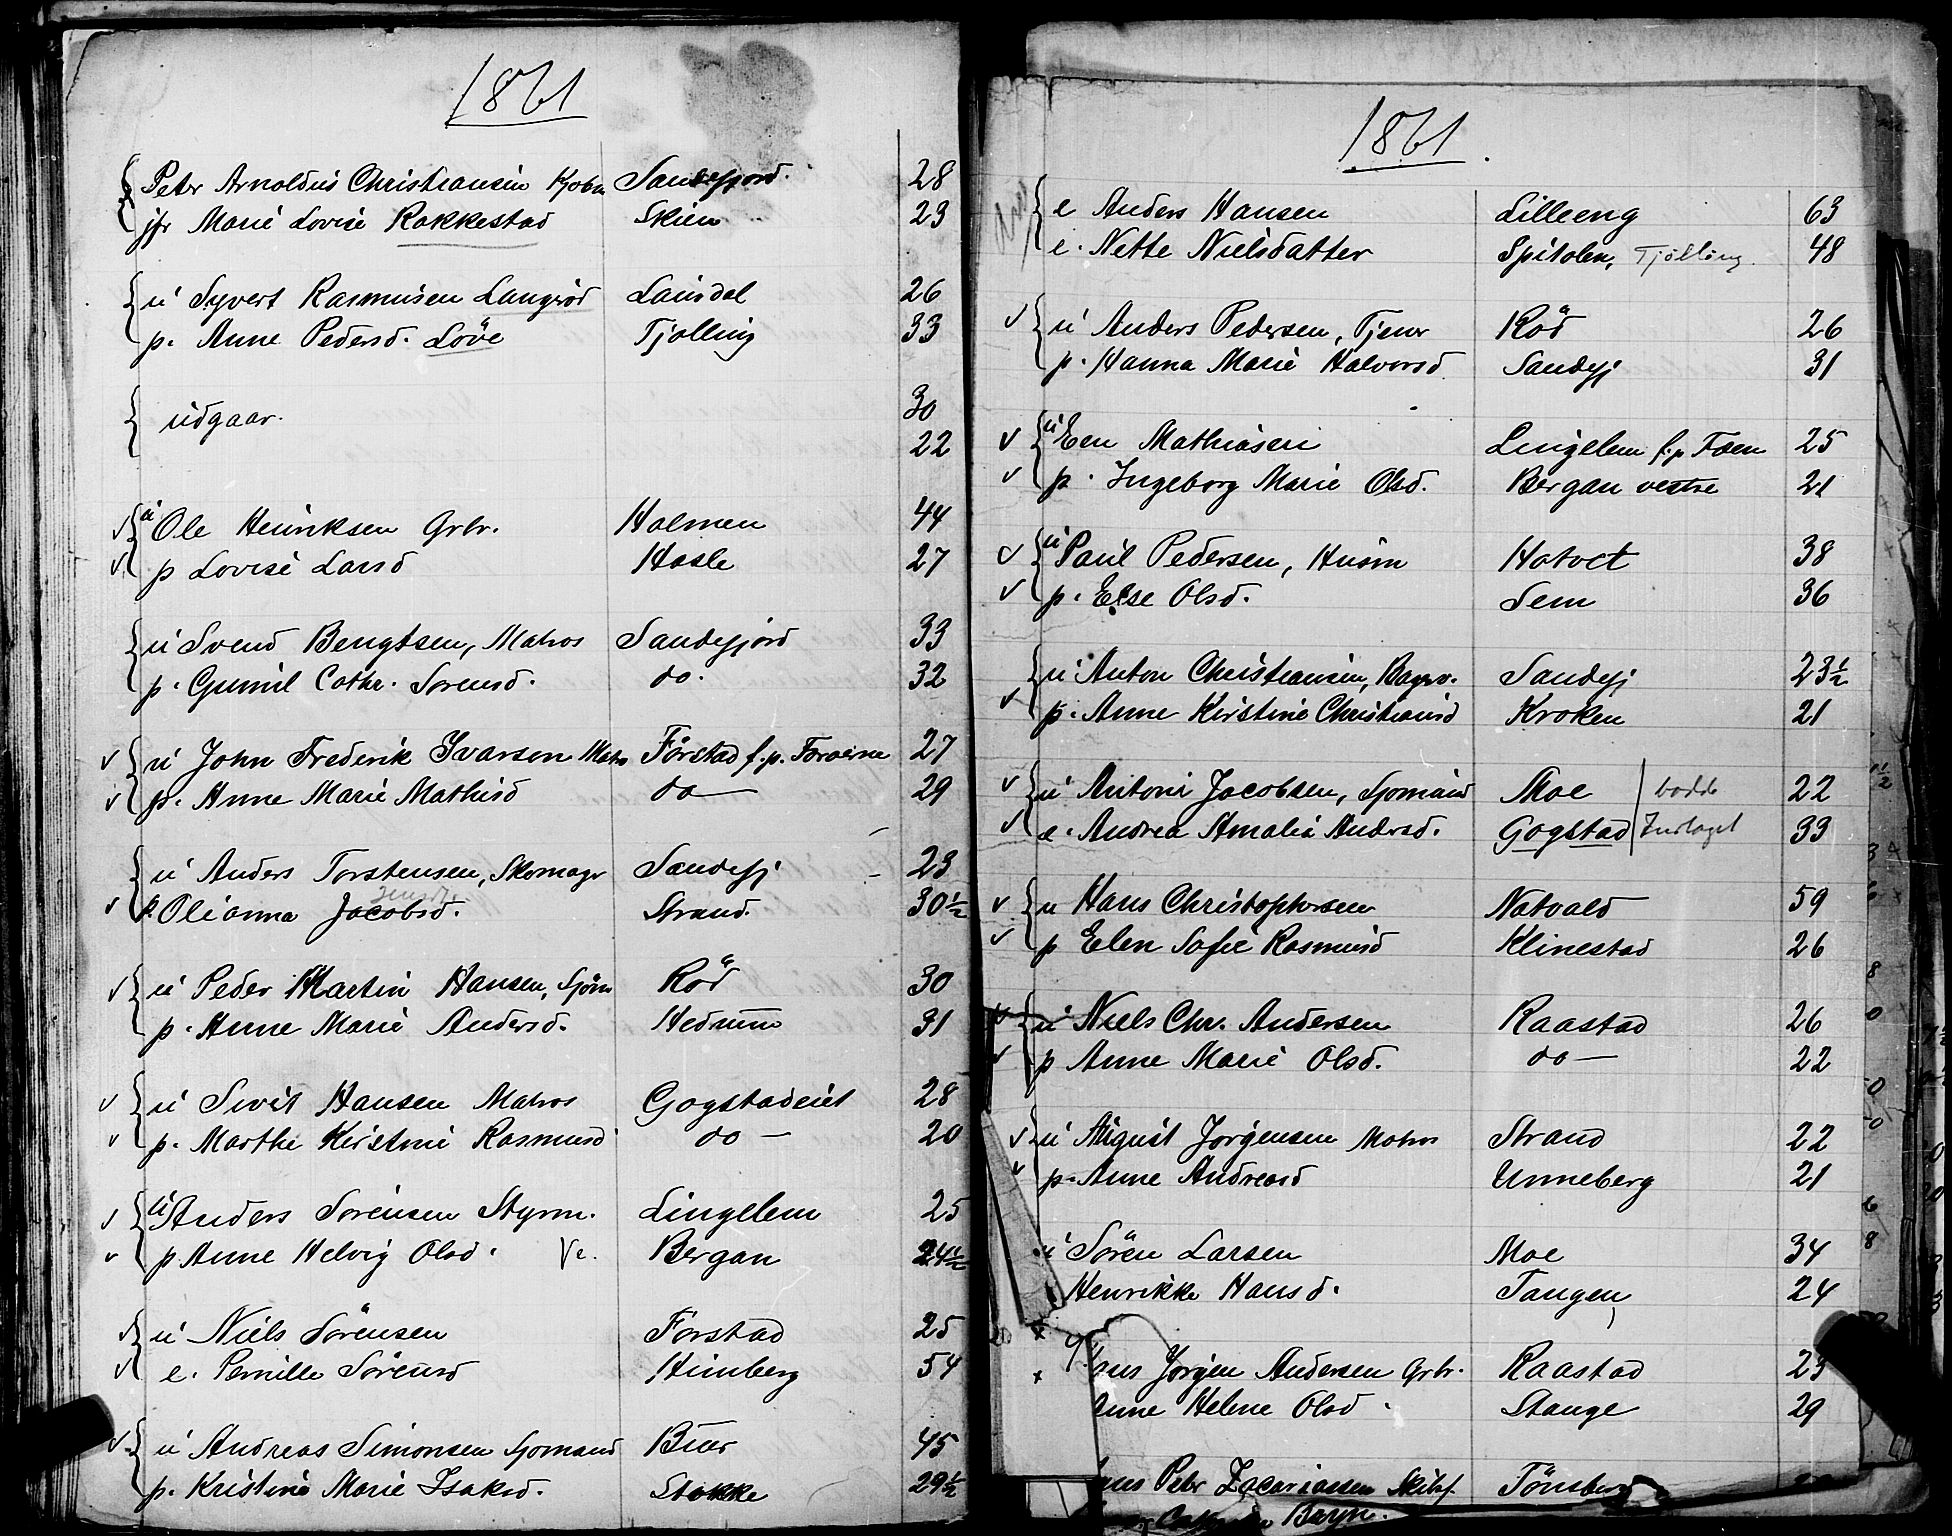 1861
Peter Arnoldus Christiansen Kjobm Sandefjord. 28
jfr Marie Lovise Rakkestad Skien 23
u Syvert Rasmusen Langrød Laurdal 26
p. Anne Pedersd. Löve Tjolling 33
udgaar. 30
22
u Ole Henriksen Grbr. Holmen 44
p Lovise Larsd Hasle 27
u Svend Bengtsen, Matros Sandefjord 33
p. Gunnil Cathr. Sorensd. do. 32
u John Frederik Ivarsen Matr Förstad f. p. 27
p. Anne Marie Mathisd do 29
u Anders Torstensen, Skomagr Sandefj 23
p. Olianna Jacobsd. Strand. 30½
u Peder Martin Hansen, Sjöm Röd 30
p. Anne Marie Andersd. Hedrum 31
u Sivert Hansen Matros Gogstadeiet 28
p. Marthe Kirstine Rasmusd do 20
u Anders Sorensen Styrm. Lingelem 25
p Anne Helvig Olsd. Ve. Bergan 24½
u Niels Sörensen Forstad 25
e. Pernille Sörensd Himberg 54
u Andreas Simonsen Sjomand Buer 45
p. Kristine Marie Isaksd. Stokke 29½
1861.
e Anders Hansen Lilleeng 63
e. Nette Nielsdatter Spitalen, Tjølling. 48
u Anders Pedersen, Tjener Röd 26
p. Hanna Marie Halvorsd Sandefj 31
u Even Mathiasen Lingelem f. p Fæen 25
p. Ingeborg Marie Olsd. Bergan vestre 21
u Paul Pedersen, Husm Hotvet 38
p. Else Olsd. Sem 36
u Anton Christiansen, Bagersv. Sandefj 23½
p. Anne Kirstine Christiansd Kroken 21
u Antoni Jacobsen, Sjomand Moe bodde 22
e. Andrea Amalia Andersd. Gogstad Indlaget 33
u Hans Christophersen Natvald 59
p Elen Sofie Rasmusd Klinestad 26
u Niels Chr. Andersen Raastad 26
p Anne Marie Olsd. do 22
u August Jorgensen Matros Strand 22
p. Anne Andreasd Unneberg 21
u Sören Larsen Moe 34
Henrikke Hansd. Tangen 24
ans Jorgen Andersen Grbr. Raastad 23
Anne Helene Olsd Stange 29
ans Peter Zacariassen Skibsf. Tönsberg
Bryn.